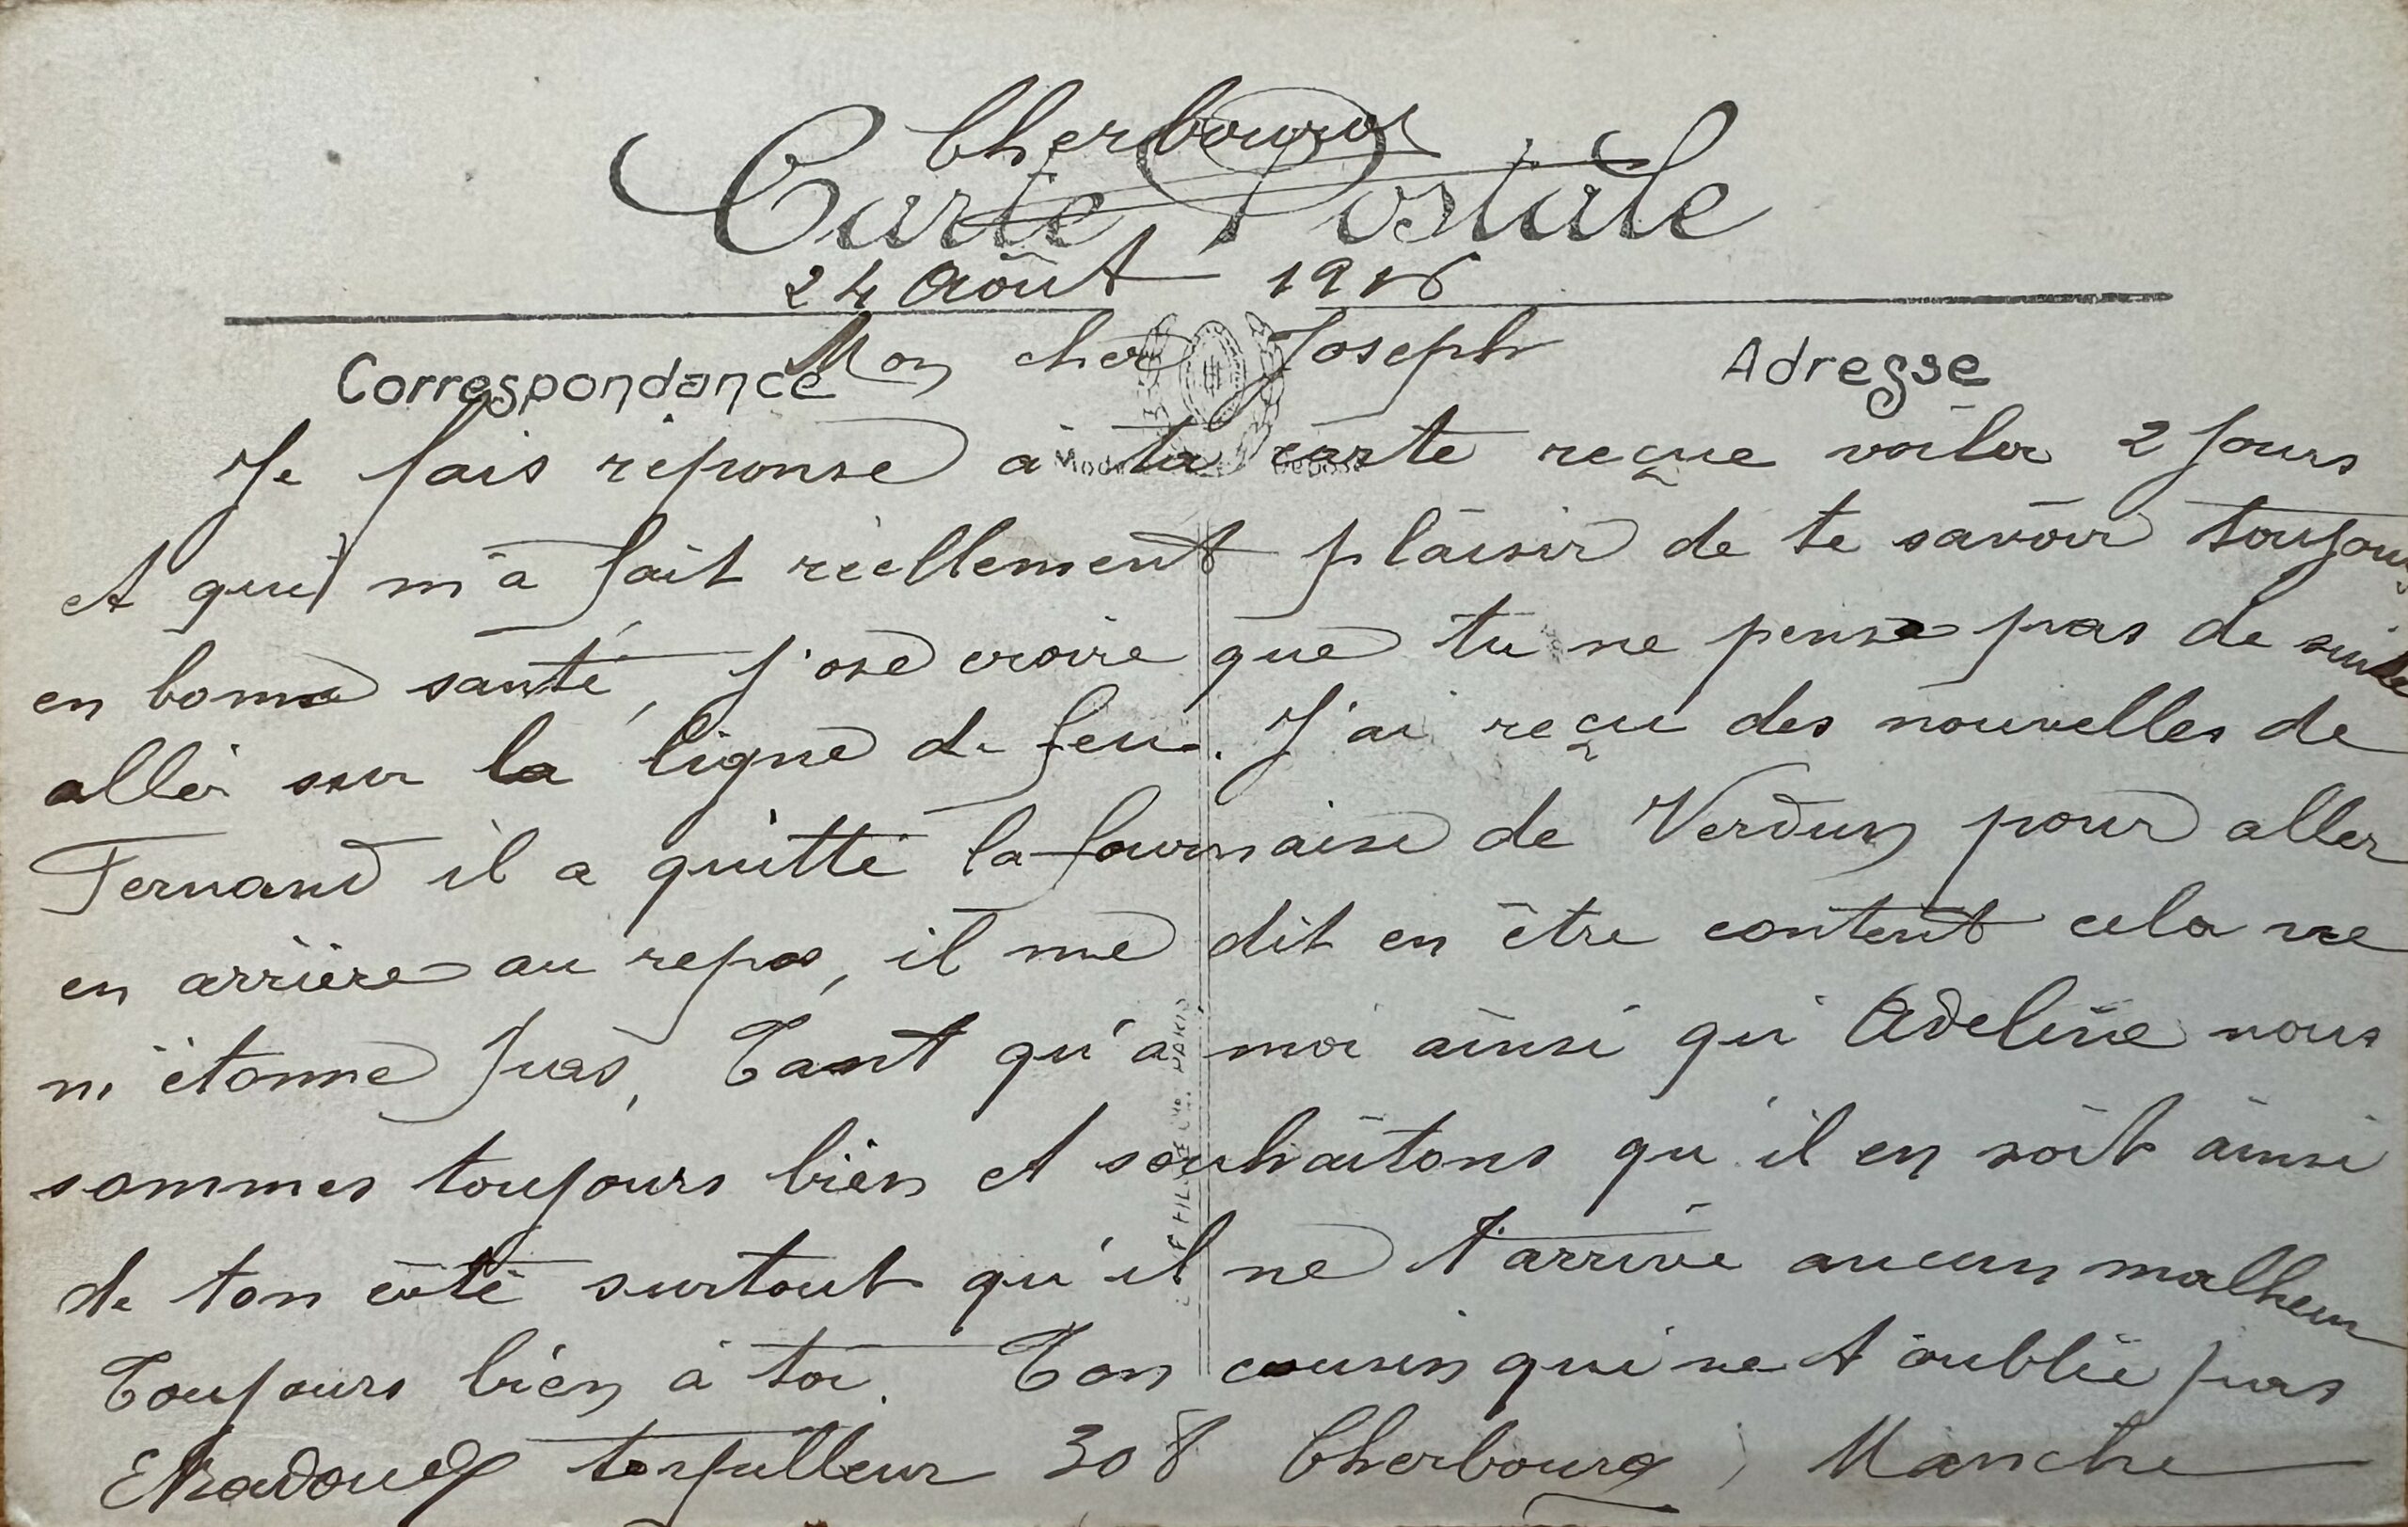 Cherbourg
Carte Postale
24 Août 1916
Mon cher Joseph
Correspondance
Adresse
Je fais réponse à ta carte reçue voila 2 jours
et qui m'a fait réellement plaisir de te savoir toujours
en bonne santé, j'ose croire que tu ne pense pas de suite
aller sur la ligne de feu. J'ai reçu des nouvelles de
Fernand il a quitté la fournaise de Verdun pour aller
en arrière au repos, il me dit en être content cela ne
m'étonne pas, Tant qu'a moi ainsi qu' Adeline nous
sommes toujours bien et souhaitons qu'il en soit ainsi
de ton côté surtout qu'il ne t'arrive aucun malheur
Toujours bien à toi. Ton cousin qui ne t'oublie pas
torpilleur 308 Cherbourg Manche